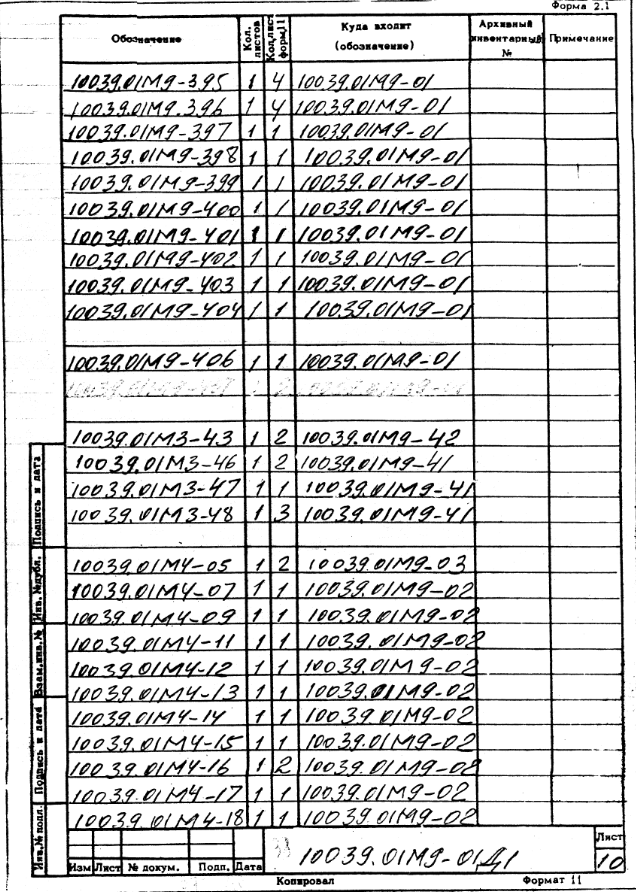 Форма 2.1
Обозначение Кол. листов Кол.лист форм.11 Куда входит (обозначение) Архивный инвентарный № Примечание
10039.01М9-395 1 4 10039.01М9-01
10039.01М9.396 1 4 10039.01М9-01
10039.01М9-397 1 1 10039.01М9-01
10039.01М9-398 1 1 10039.01М9-01
10039.01М9-399 1 1 10039.01М9-01
10039.01М9-400 1 1 10039.01М9-01
10039.01М9-401 1 1 10039.01М9-01
10039.01М9-402 1 1 10039.01М9-01
10039.01М9-403 1 1 10039.01М9-01
10039.01М9-404 1 1 10039.01М9-01
10039.01М9-406 1 1 10039.01М9-01
10039.01М3-43 1 2 10039.01М9-42
10039.01М3-46 1 2 10039.01М9-41
10039.01М3-47 1 1 10039.01М9-41
10039.01М3-48 1 3 10039.01М9-41
10039.01М4-05 1 2 10039.01М9-03
10039.01М4-07 1 1 10039.01М9-02
10039.01М4-09 1 1 10039.01М9-02
10039.01М4-11 1 1 10039.01М9-02
10039.01М4-12 1 1 10039.01М9-02
10039.01М4-13 1 1 10039.01М9-02
10039.01М4-14 1 1 10039.01М9-02
10039.01М4-15 1 1 10039.01М9-02
10039.01М4-16 1 2 10039.01М9-02
10039.01М4-17 1 1 10039.01М9-02
10039.01М4-18 1 1 10039.01М9-02
Подпись и дата
Инв. №дубл.
Взам.инв.№
Подпись и дата
Инв.№ подл.
Изм Лист № докум. Подп. Дата
10039.01М9-01Д1
Лист
10
Копировал Формат 11